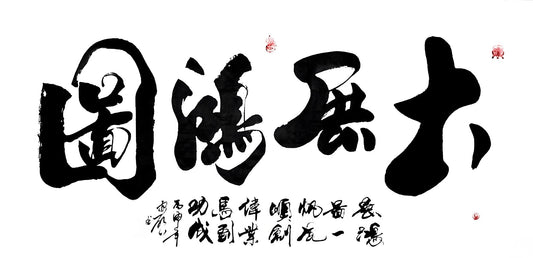 大展鴻圖
展鴻
圖一
帆風
順創
偉業
馬到
功成
丙申年